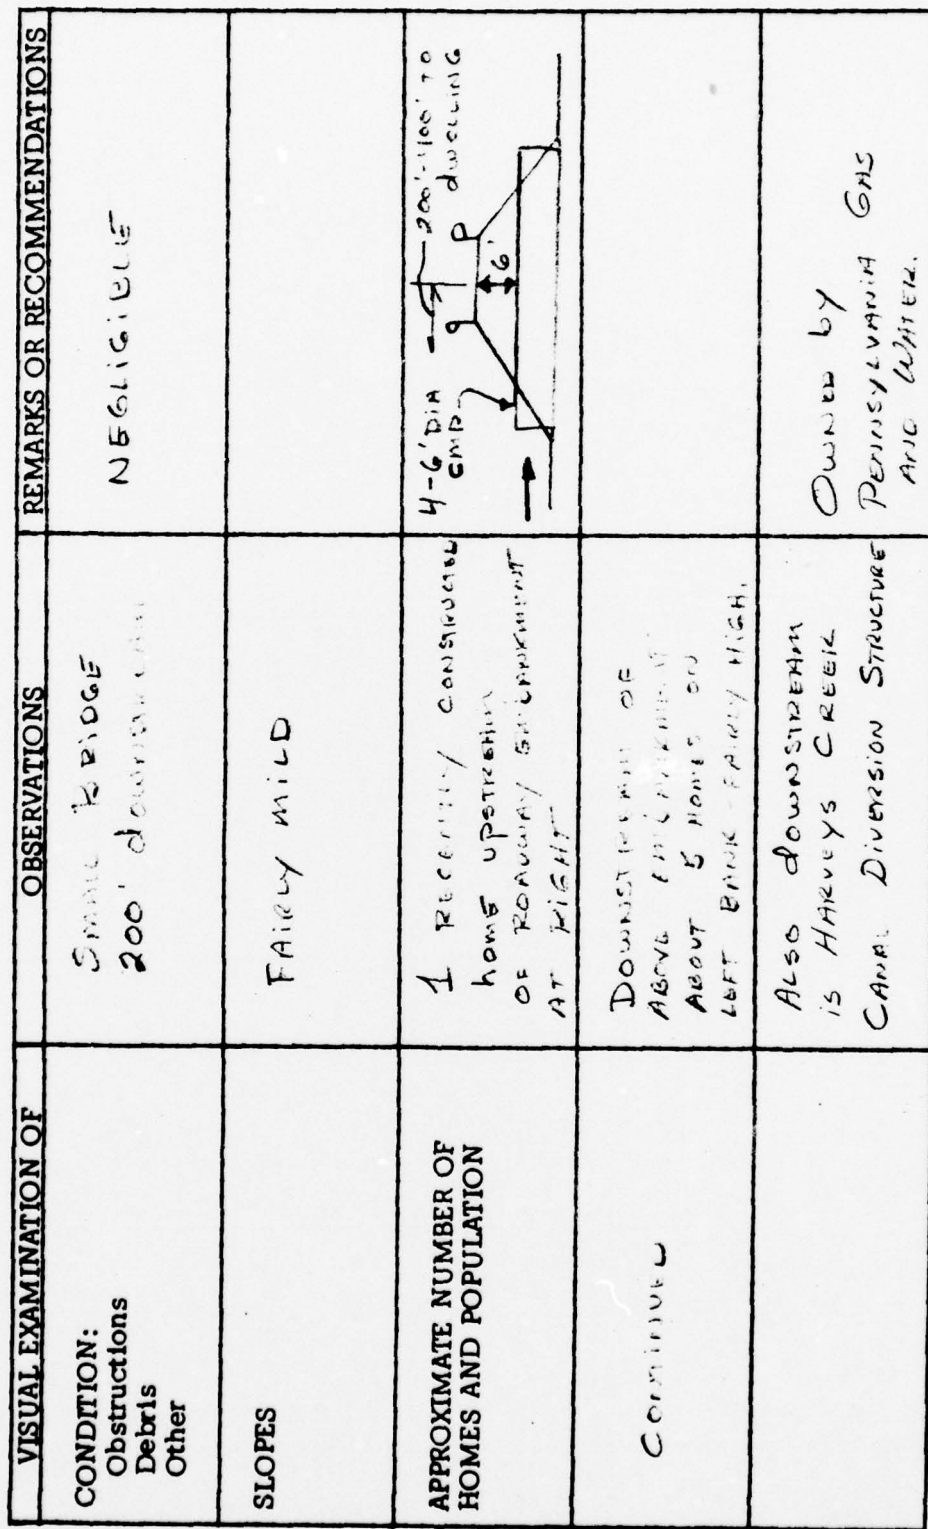 VISUAL EXAMINATION OF
OBSERVATIONS
REMARKS OR RECOMMENDATIONS
CONDITION:
Obstructions
Debris
Other
SMALL BRIDGE
200' downstream
NEGLIGIBLE
SLOPES
FAIRLY MILD
APPROXIMATE NUMBER OF
HOMES AND POPULATION
1 RECENTLY CONSTRUCTED
home UPSTREAM
OF ROADWAY EMBANKMENT
AT RIGHT
4-6' DIA
CMP
200'-400' TO
dwelling
6'
CONTINUED
DOWNSTREAM OF
ABOVE EMBANKMENT
ABOUT 5 HOMES ON
LEFT BANK - FAIRLY HIGH.
ALSO downSTREAM
is HARVEYS CREEK
CANAL DIVERSION STRUCTURE
OWNED by
PENNSYLVANIA GAS
AND WATER.